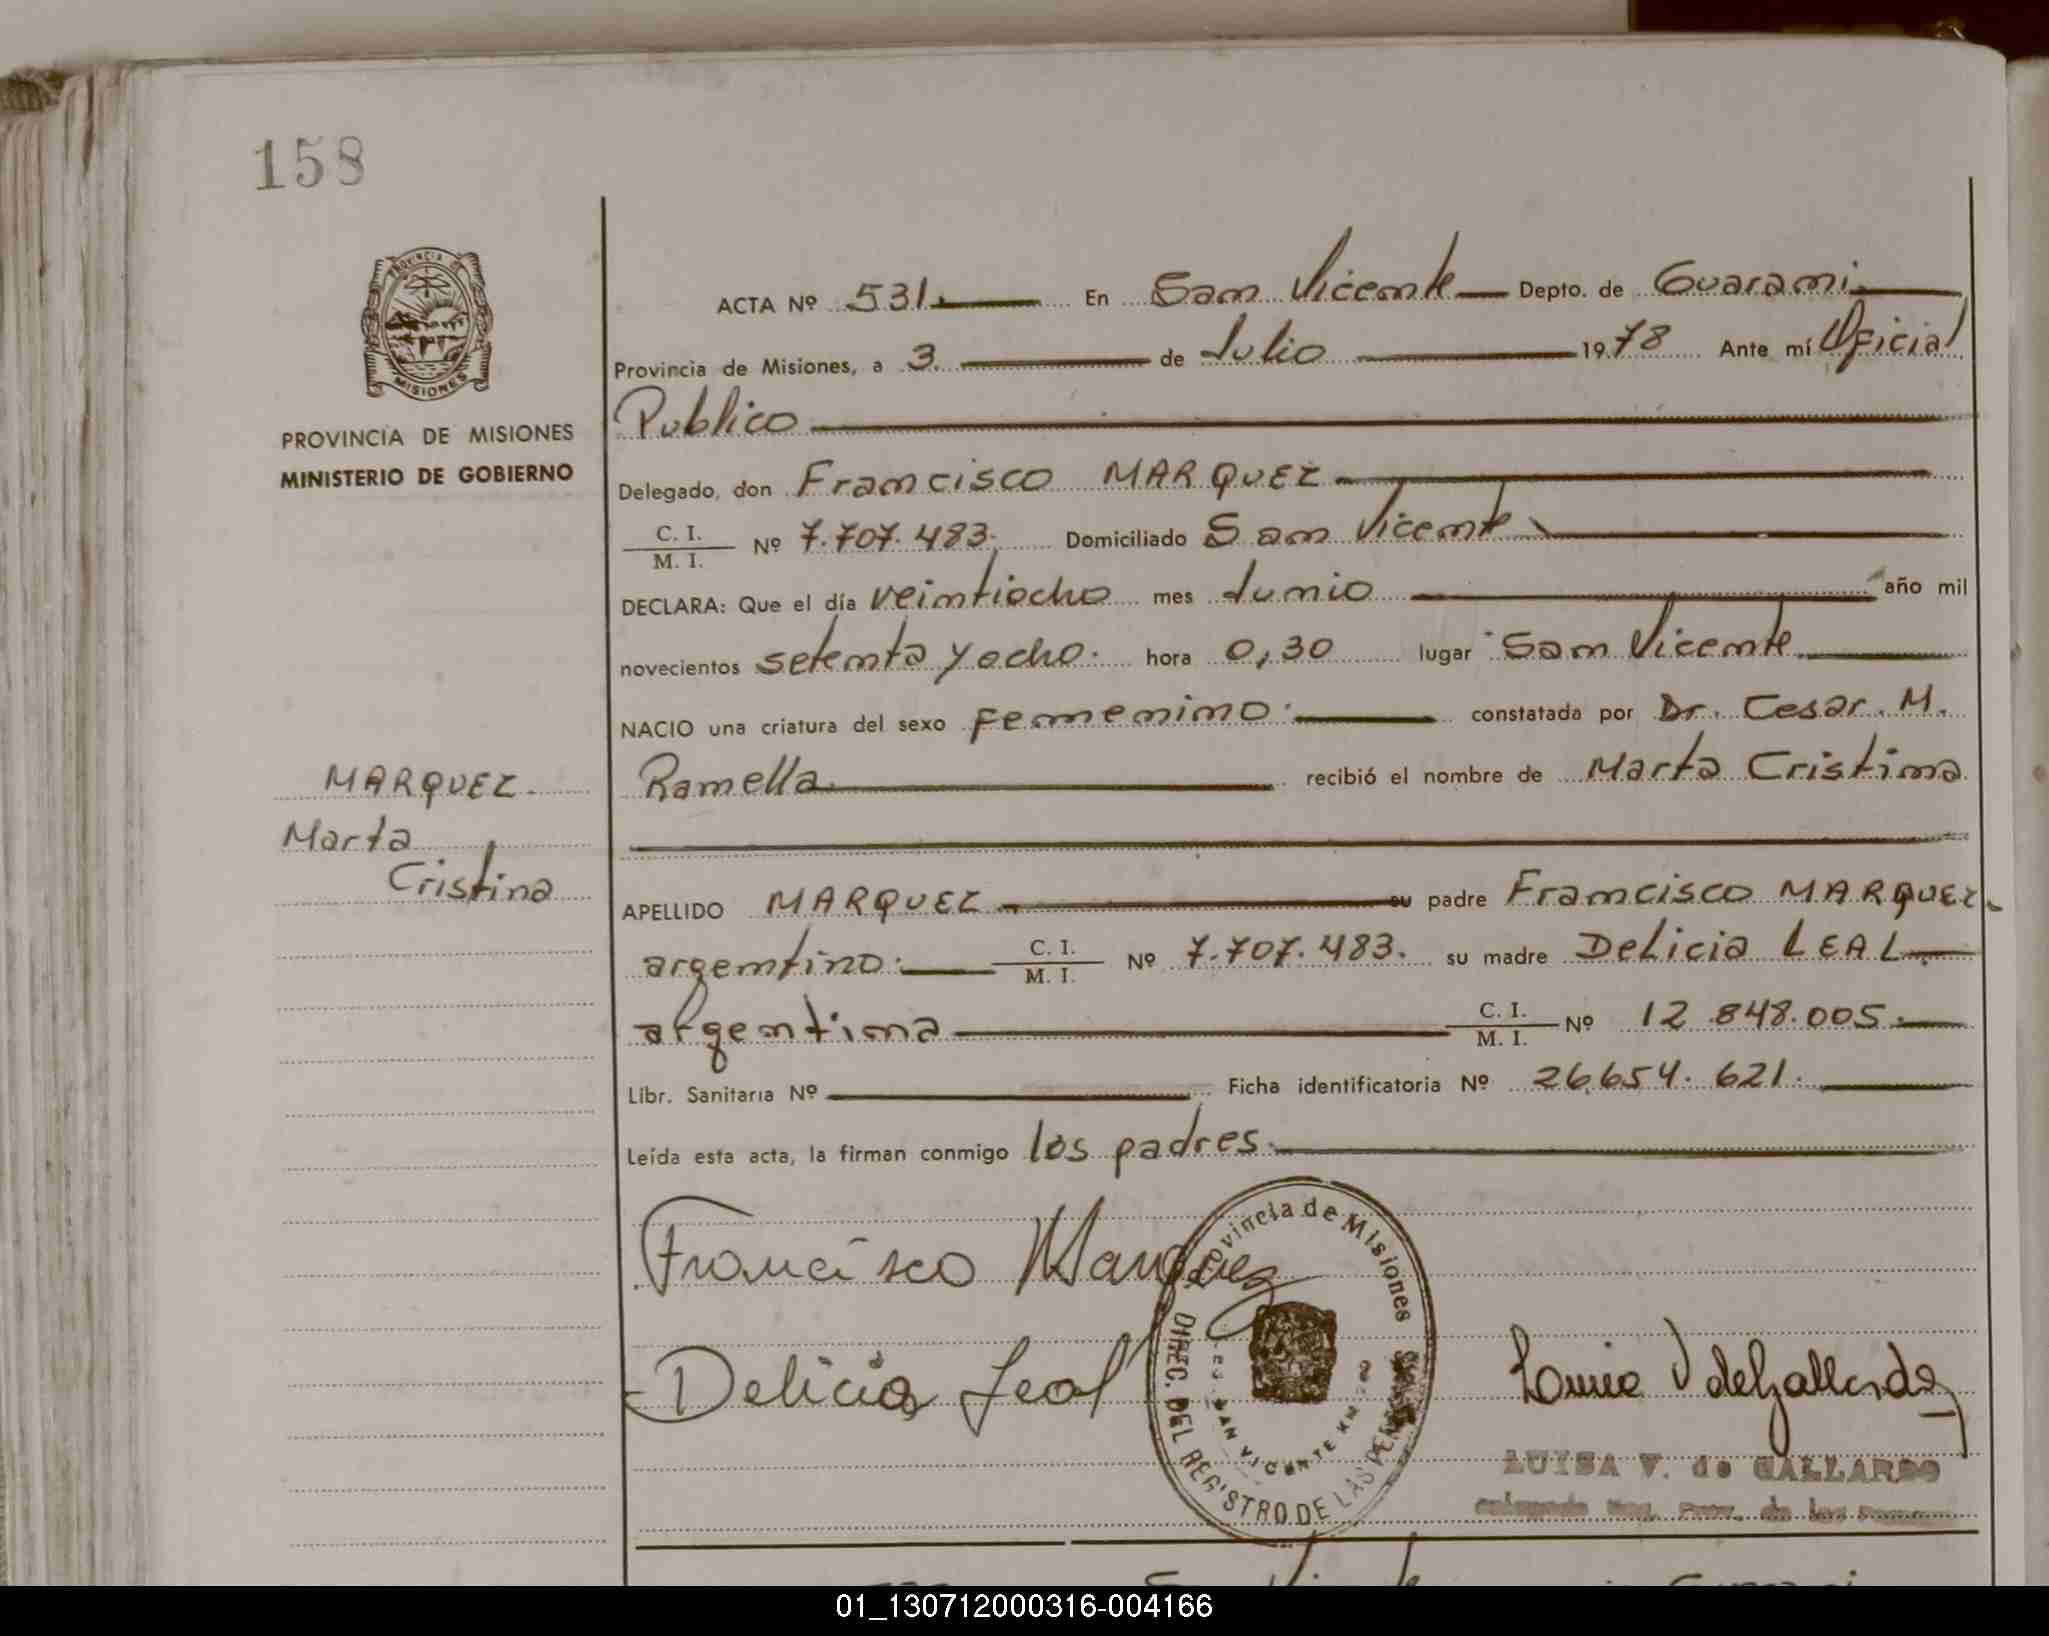 158
PROVINCIA DE MISIONES
PROVINCIA DE MISIONES
MINISTERIO DE GOBIERNO
ACTA Nº 531. En San Vicente Depto. de Guarani
Provincia de Misiones, a 3. de Julio 1978 Ante mí Oficial
Publico
Delegado, don Francisco MARQUEZ
C. I.
M. I. Nº 7.707.483. Domiciliado San Vicente
DECLARA: Que el día veintiocho mes Junio año mil
novecientos setenta y ocho. hora 0,30 lugar San Vicente
NACIO una criatura del sexo femenino. constatada por Dr. Cesar. M.
Ramella recibió el nombre de Marta Cristina
MARQUEZ.
Marta
Cristina
APELLIDO MARQUEZ su padre Francisco MARQUEZ.
argentino. C. I.
M. I. Nº 7.707.483. su madre Delicia LEAL
argentina C. I.
M. I. Nº 12.848.005.
Libr. Sanitaria Nº Ficha identificatoria Nº 26.654.621.
Leída esta acta, la firman conmigo los padres.
Francisco Marquez
Delicia Leal
Provincia de Misiones
DIREC. DEL REGISTRO DE LAS
SAN VICENTE KM.
LUISA V. de GALLARDO
de las
01_130712000316-004166